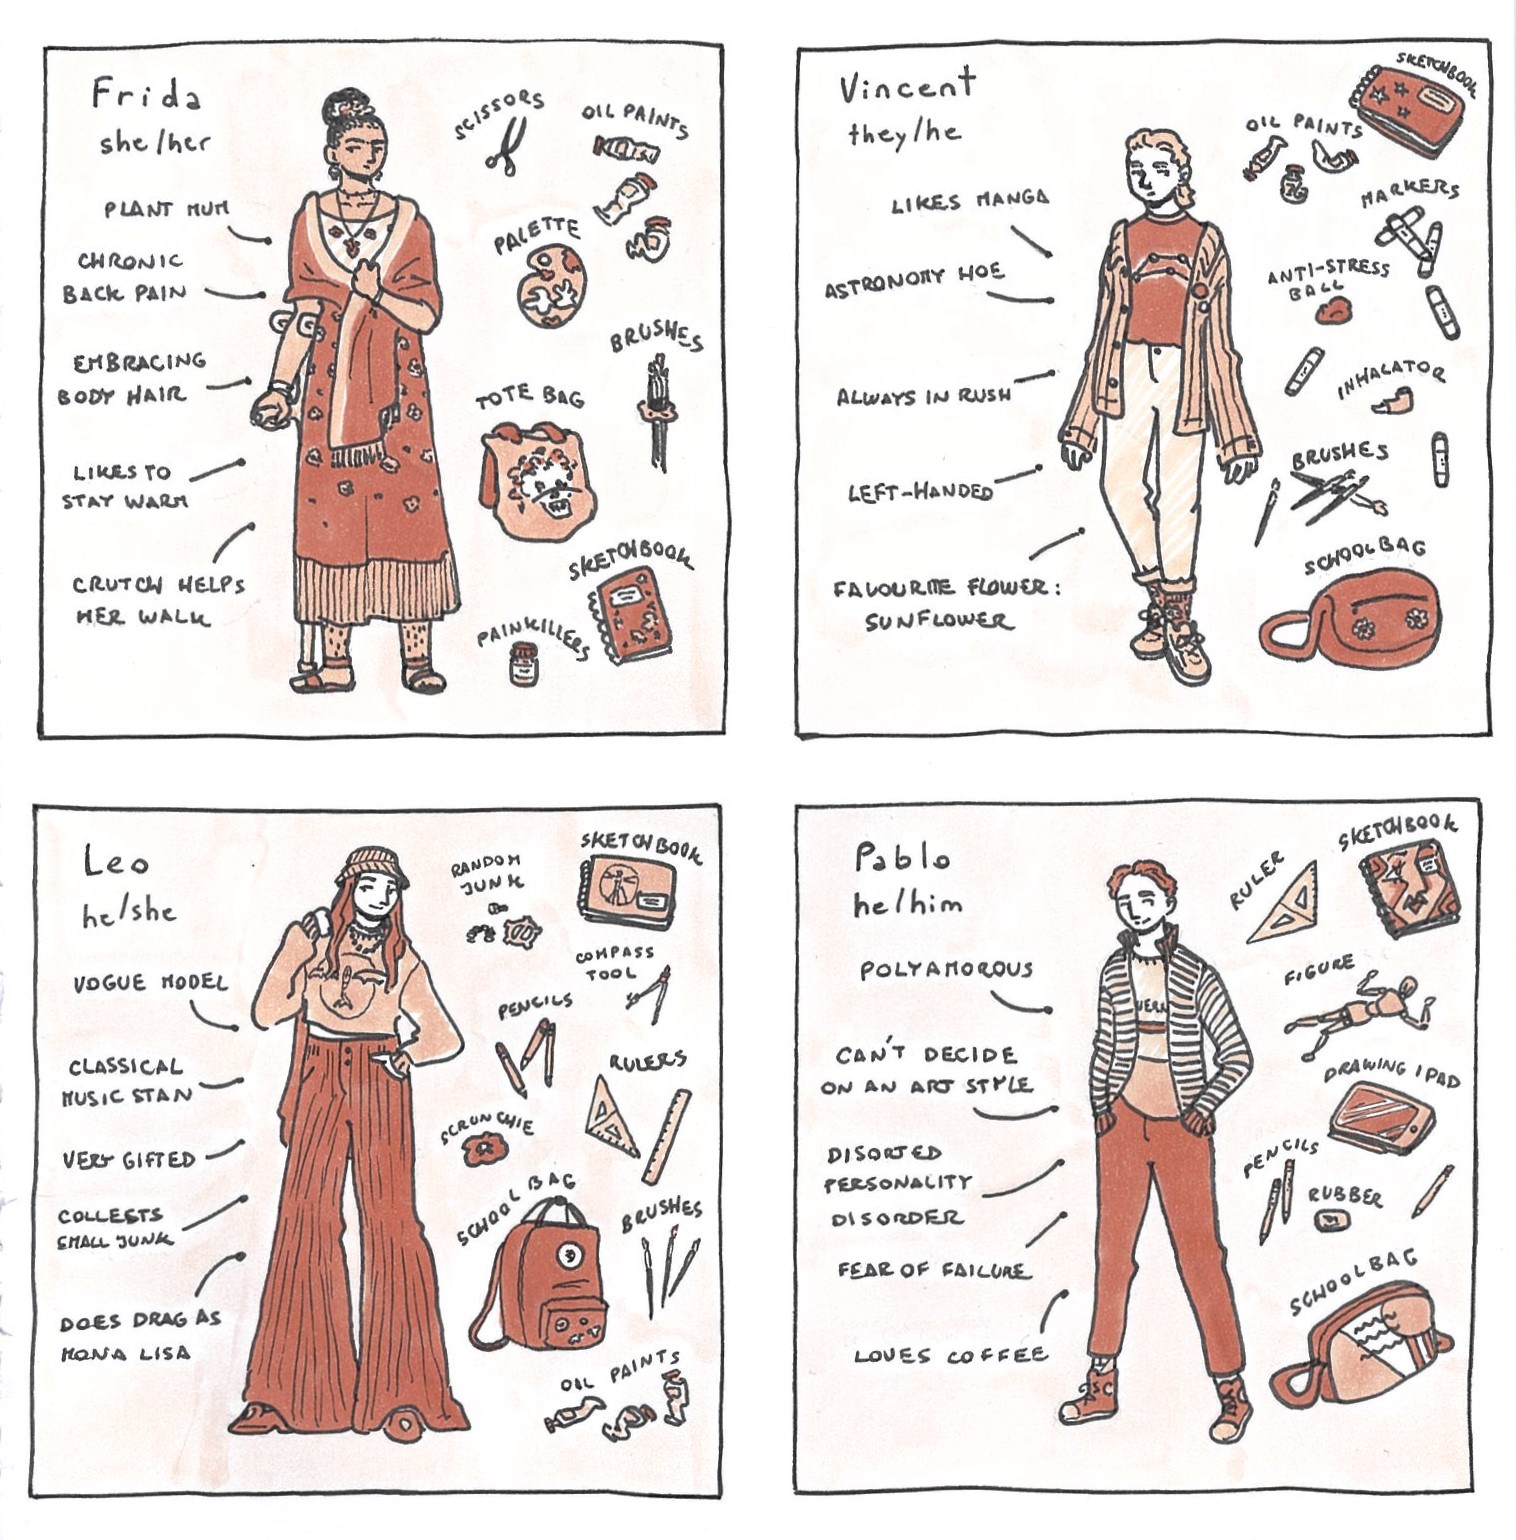 Frida
she/her
PLANT MUM
CHRONIC
BACK PAIN
EMBRACING
BODY HAIR
LIKES TO
STAY WARM
CRUTCH HELPS
HER WALK
SCISSORS
OIL PAINTS
PALETTE
BRUSHES
TOTE BAG
SKETCHBOOK
PAINKILLERS
Vincent
they/he
LIKES MANGA
ASTRONOMY HOE
ALWAYS IN RUSH
LEFT-HANDED
FAVOURITE FLOWER:
SUNFLOWER
SKETCHBOOK
OIL PAINTS
MARKERS
ANTI-STRESS
BALL
INHALATOR
BRUSHES
SCHOOLBAG
Leo
he/she
VOGUE MODEL
CLASSICAL
MUSIC STAN
VERY GIFTED
COLLECTS
SMALL JUNK
DOES DRAG AS
MONA LISA
RANDOM
JUNK
SKETCHBOOK
COMPASS
TOOL
PENCILS
RULERS
SCRUNCHIE
SCHOOL BAG
BRUSHES
OIL PAINTS
Pablo
he/him
POLYAMOROUS
CAN'T DECIDE
ON AN ART STYLE
DISORTED
PERSONALITY
DISORDER
FEAR OF FAILURE
LOVES COFFEE
RULER
SKETCHBOOK
FIGURE
DRAWING IPAD
PENCILS
RUBBER
SCHOOLBAG